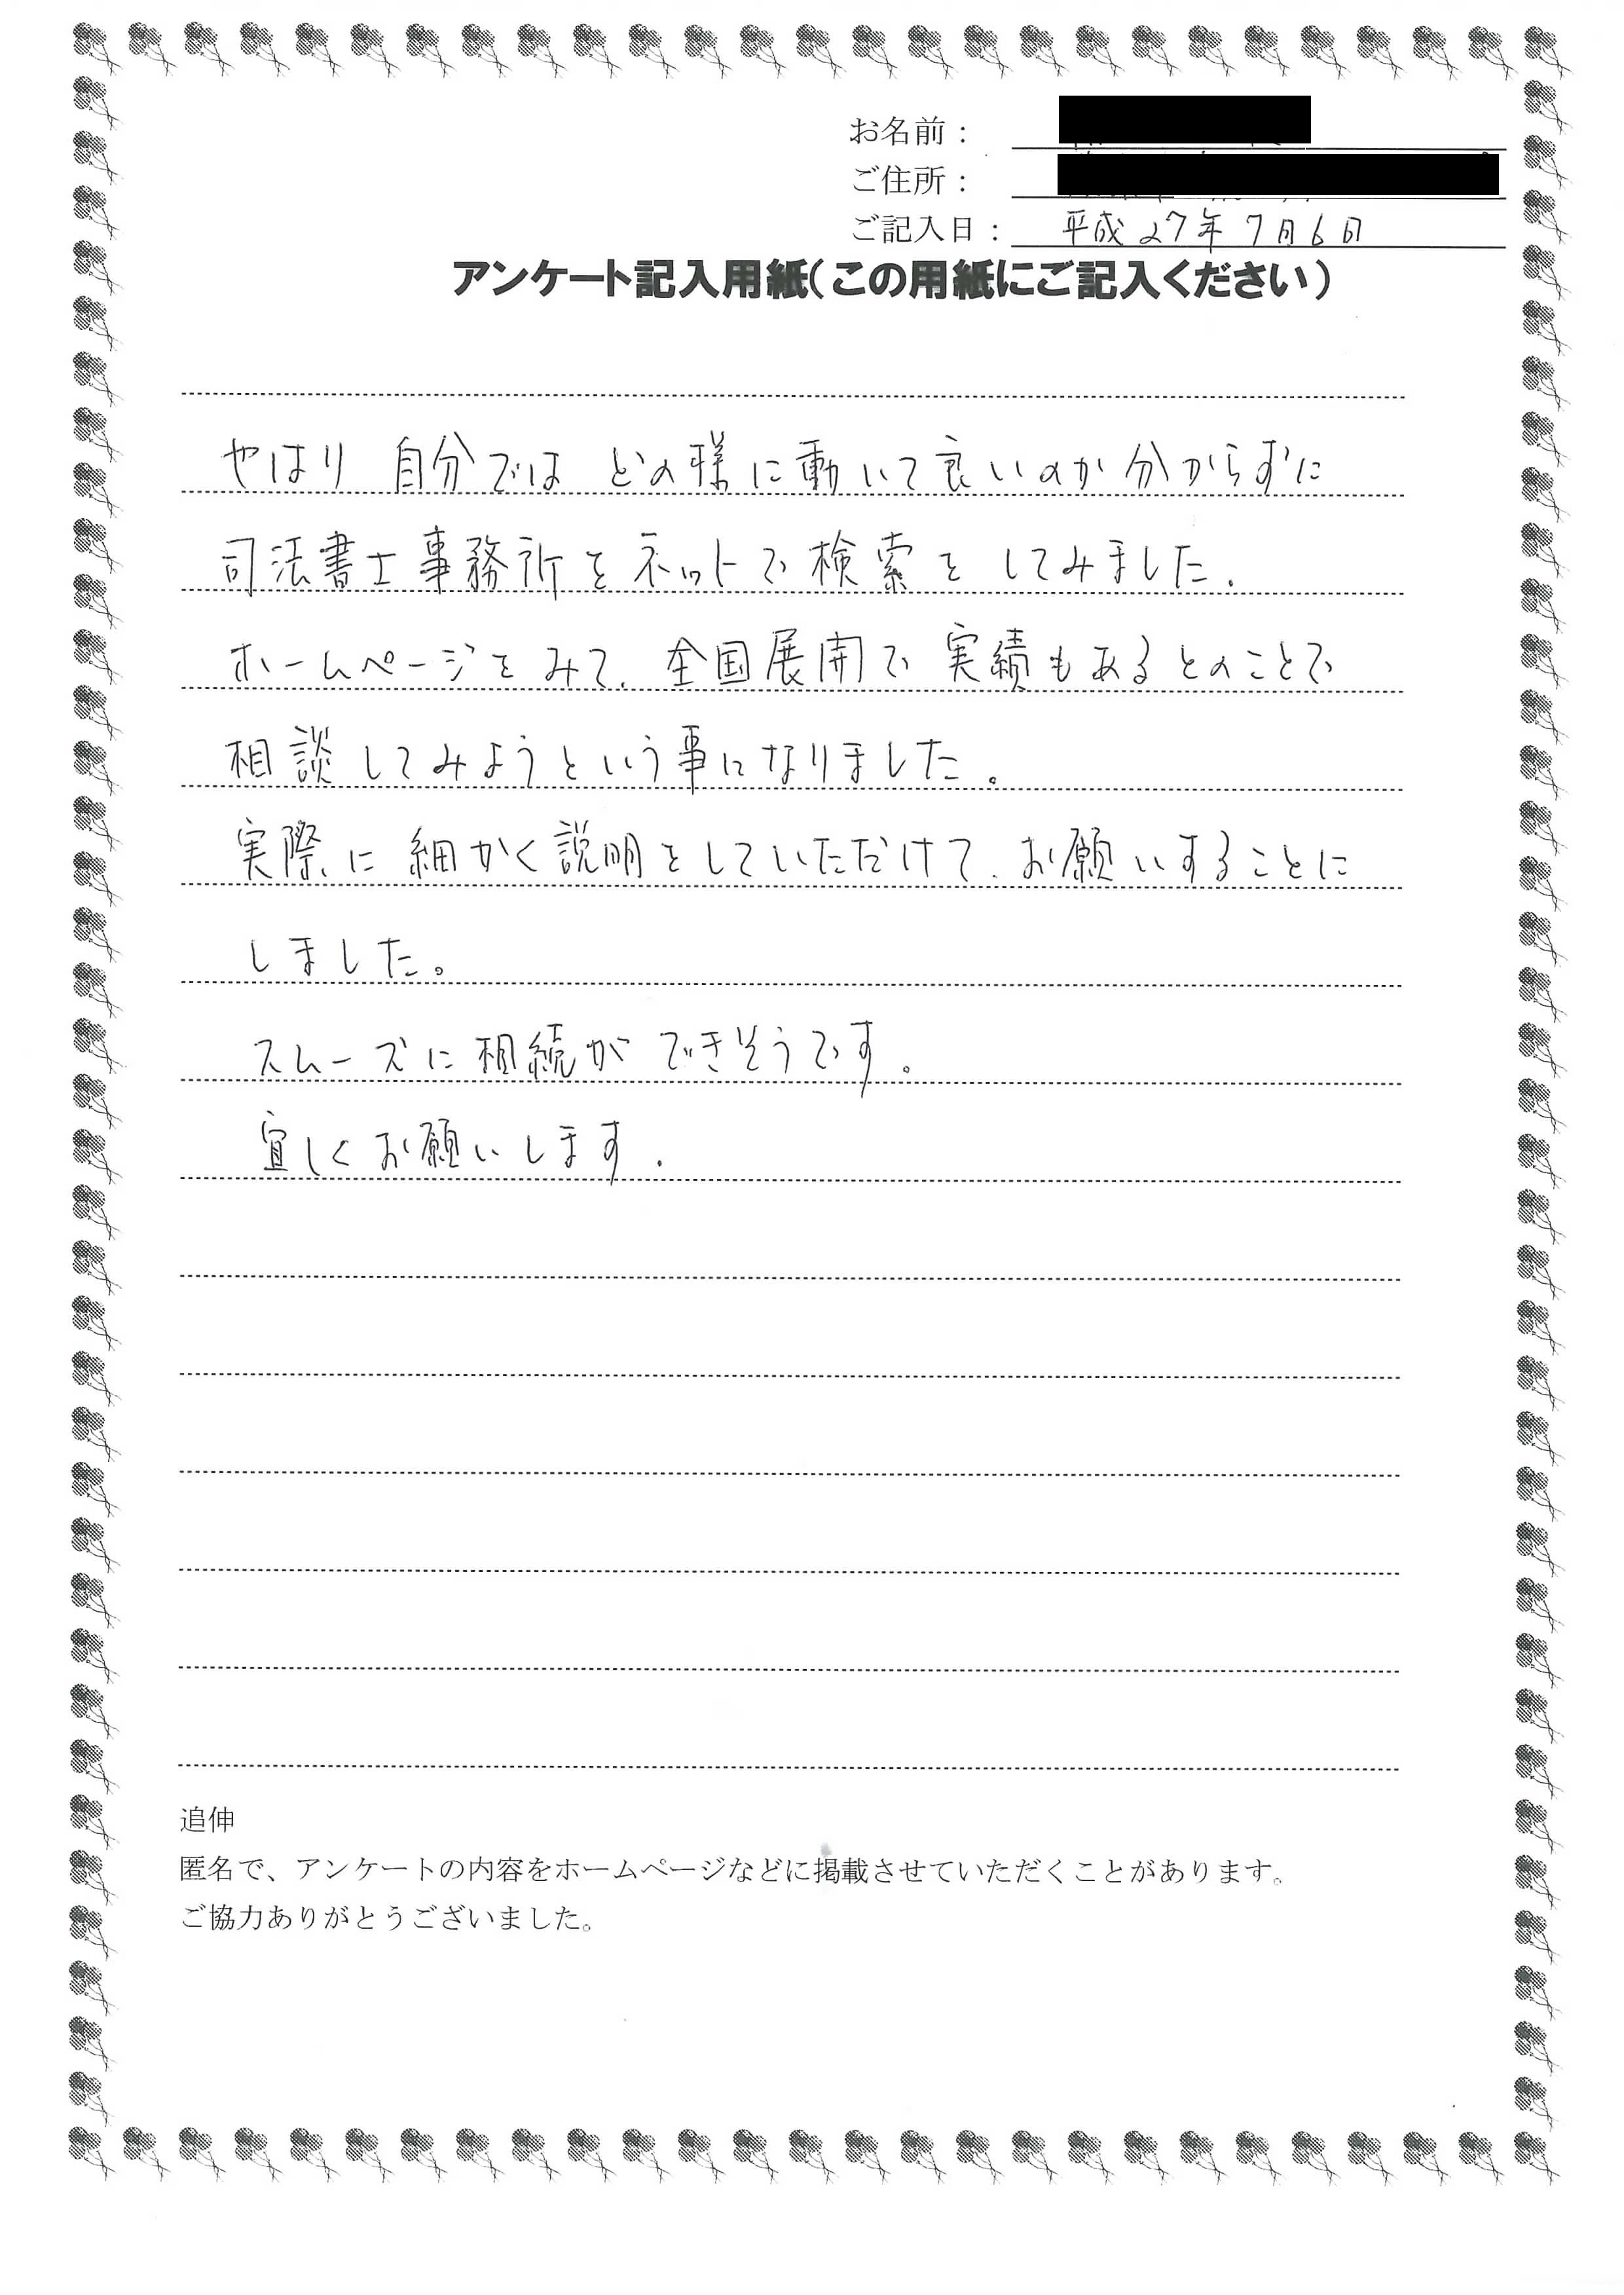 お名前：
ご住所：
ご記入日： 平成27年7月6日
アンケート記入用紙(この用紙にご記入ください)
やはり 自分では どの様に動いて良いのか 分からずに
司法書士事務所をネットで検索をしてみました.
ホームページをみて、全国展開で 実績もあるとのことで
相談してみようという事になりました。
実際に細かく説明をしていただけて、お願いすることに
しました。
スムーズに相続ができそうです。
宜しくお願いします.
追伸
匿名で、アンケートの内容をホームページなどに掲載させていただくことがあります。
ご協力ありがとうございました。